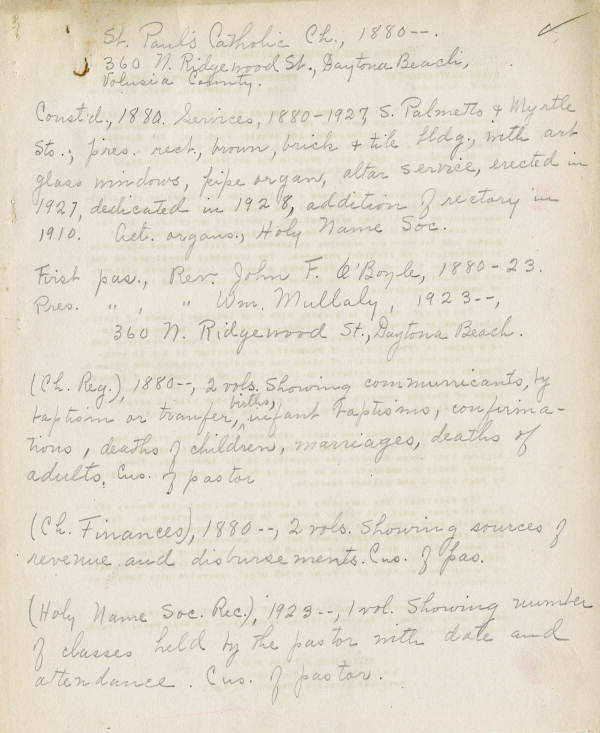 St. Paul's Catholic Ch., 1880--.
360 N. Ridgewood St., Daytona Beach,
Volusia County.
Const'd., 1880. Services, 1880-1927, S. Palmetto & Myrtle
Sts.; pres. rect., brown, brick & tile bldg., with art
glass windows, pipe organ, altar service, erected in
1927, dedicated in 1928, addition of rectory in
1910. Act. organs., Holy Name Soc.
First pas., Rev. John F. O'Boyle, 1880-23.
Pres. " , " Wm. Mullaly, 1923--,
360 N. Ridgewood St., Daytona Beach.
(Ch. Reg.), 1880--, 2 vols. Showing communicants, by
baptism or transfer, births, infant baptisms, confirma-
tions, deaths of children, marriages, deaths of
adults. Cus. of pastor
(Ch. Finances), 1880--, 2 vols. Showing sources of
revenue and disbursements. Cus. of pas.
(Holy Name Soc. Rec.), 1923--, 1 vol. Showing number
of classes held by the pastor with date and
attendance. Cus. of pastor.